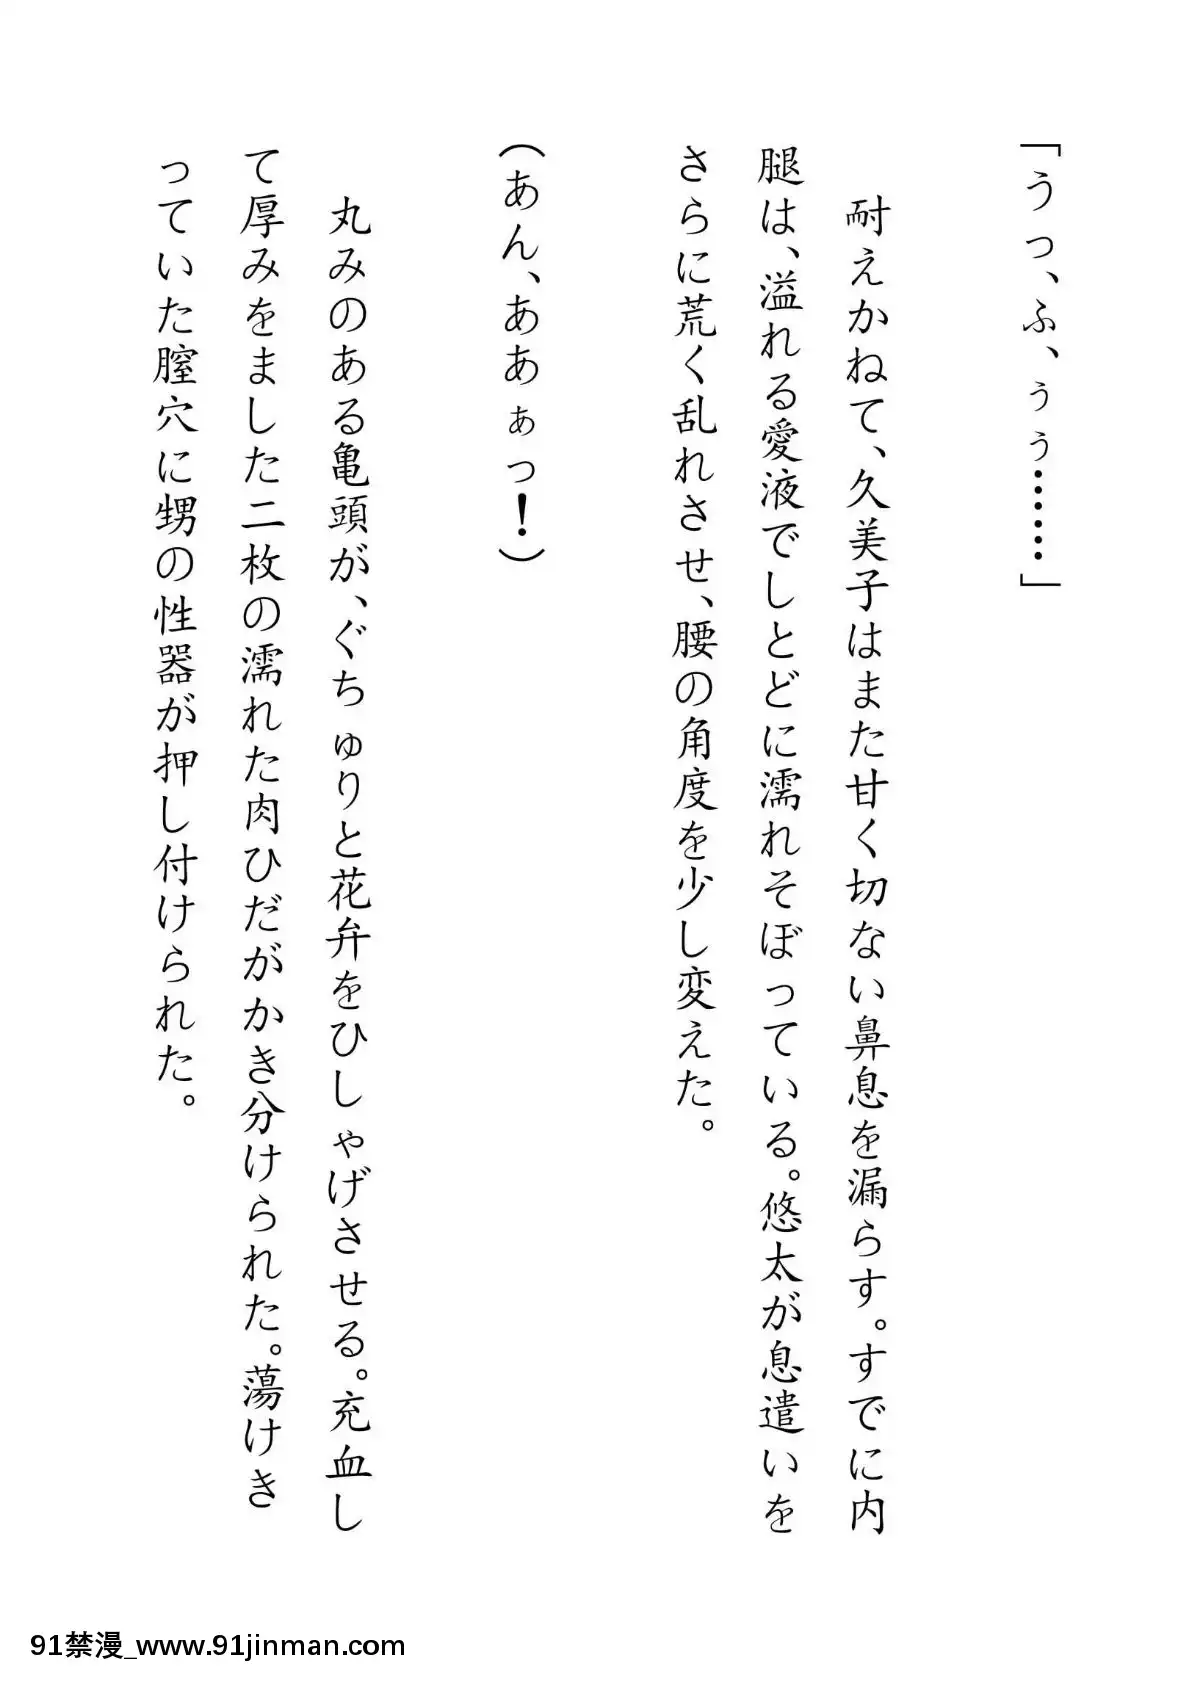 「うっ、ふ、ぅぅ……」
　耐えかねて、久美子はまた甘く切ない鼻息を漏らす。すでに内
腿は、溢れる愛液でしとどに濡れそぼっている。悠太が息遣いを
さらに荒く乱れさせ、腰の角度を少し変えた。
(あん、ああぁっ！)
　丸みのある亀頭が、ぐちゅりと花弁をひしゃげさせる。充血し
て厚みをました二枚の濡れた肉ひだがかき分けられた。蕩けき
っていた膣穴に甥の性器が押し付けられた。
91禁漫_www.91jinman.com